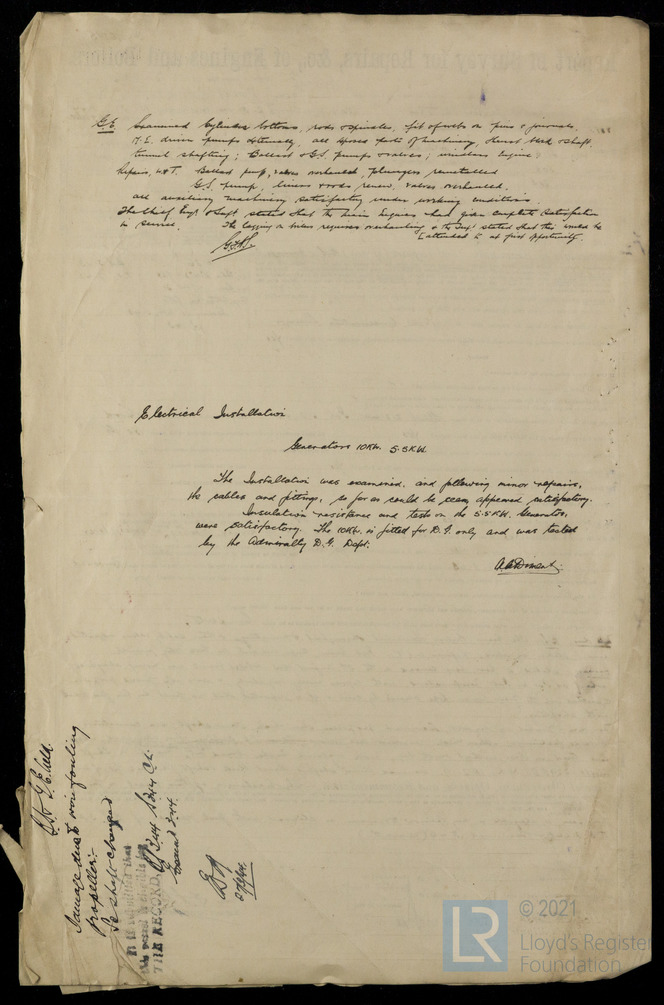 G.E. Examined Cylinder bottoms, rods & spindles, fit of webs on pins & journals,
M.E. driven pumps externally, all spare parts of machinery, thrust block & shaft
tunnel shafting; Ballast & G.S. pumps & valves; windlass Engine
Repairs, W&T. Ballast pump, valves overhauled, plungers remetalled
G.S. pump, liners & rods renew, valves overhauled.
all auxiliary machinery satisfactory under working conditions
The Chief Engr & Supt stated that the main Engines had given complete satisfaction
in service. The lagging on boilers requires overhauling & the Supt stated that this would be
[attended to at first opportunity.
Electrical Installation
Generators 10KW. 5.5KW.
The Installation was examined, and following minor repairs,
the cables and fittings, so far as could be seen, appeared satisfactory.
Insulation resistance and tests on the 5.5KW. Generator,
were satisfactory. The 10KW. is fitted for D.G. only and was tested
by the Admiralty D.G. Dept.
Damage due to wire fouling
propeller:-
TS shaft changed
It is submitted that
this vessel is eligible for
THE RECORD
LR
© 2021
Lloyd's Register
Foundation